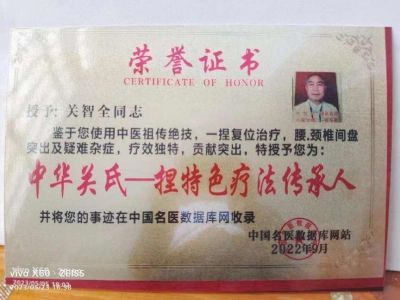 荣誉证书
CERTIFICATE OF HONOR
授予：关智全同志
鉴于您使用中医祖传绝技，一捏复位治疗，腰、颈椎间盘
突出及疑难杂症，疗效独特，贡献突出，特授予您为：
中华关氏一捏特色疗法传承人
并将您的事迹在中国名医数据库网收录
中国名医数据库网站
2022年9月
vivo X60 · ZEISS